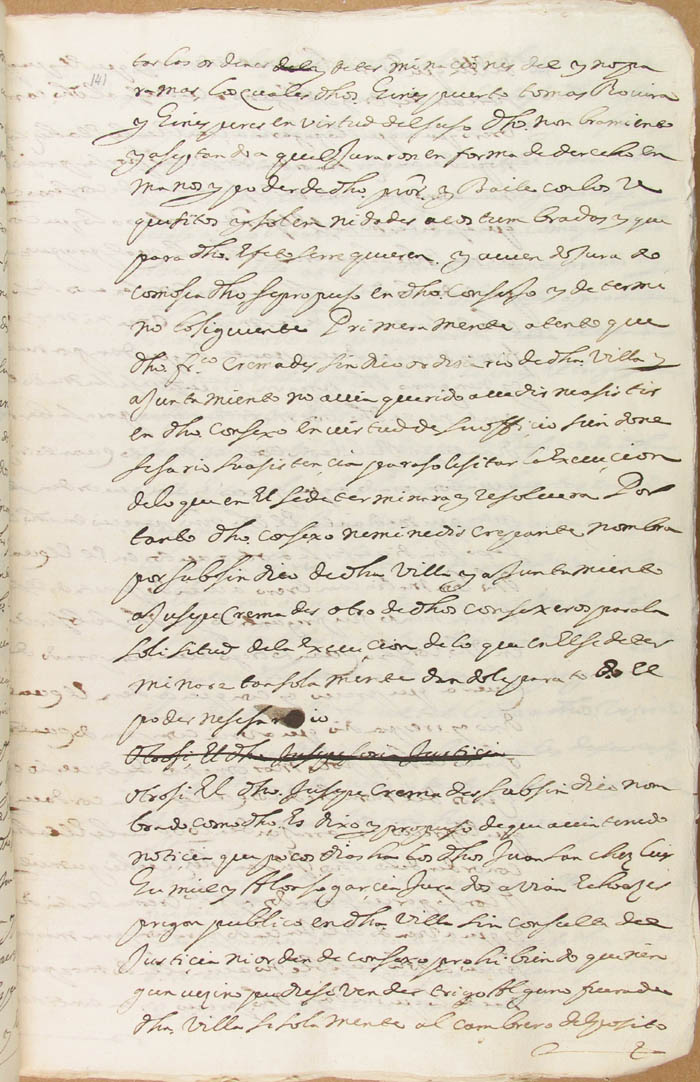 141
tar los ordenes dela determinaciones del y no pa
ra mas los quales dhos Gines puerto tomas Rovira
y Gines peres en virtud del suso dho nonbramiento
y aseptando aquel Juraron en forma de derecho en
manos y poder de dho y Baile con los re
quisitos y solemnidades acostumbradas y que
para dho Efeto se requieren y aviendo Jurado
como sea dho se propuso en dho Consexo y determi
no lo siguiente Primeramente atento que
dho fr.co Cremades sindico ordinario de dha Villa y
aJuntamiento no avia querido acudir ni asistir
en dho Consexo en virtud de su officio siendo ne
sesario su asistencia para solisitar la Execucion
de lo que en El se determinara y resolviera Por
tanto dho consexo nemine discrepante nombra
por subsindico de dha Villa y aJuntamiento
a Jusepe Cremades otro de dhos consexeros para la
solisitud de la Execucion de lo que en El se deter
minare tan sola mente dandole para todo El
poder nesesario
otrosi El dho Jusepe Justicia
otrosi El dho Jusepe Cremades subsindico non
brado como dho Es dixo y propuso de que a tenido
noticia que pocos dias ha los dhos Juan Sanchez
y Alonso garcia Jurados avian Echo
pregon publico en dha Villa sin consulta del
Justicia ni orden de consexo prohibiendo que nin
gun vezino pudiese vender trigo alguno fuera de
dha Villa si sola mente al cambrero deposito